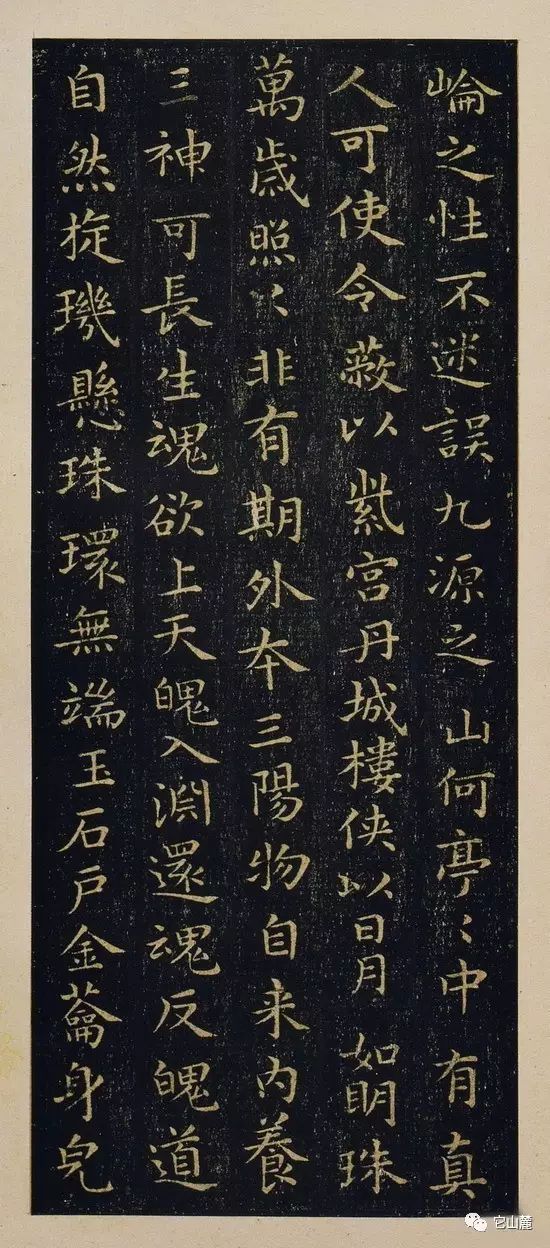 崘之性不迷誤九源之山何亭〻中有真
人可使令蔽以紫宮丹城樓俠以日月如明珠
萬歲照〻非有期外本三陽物自来内養
三神可長生魂欲上天魄入淵還魂反魄道
自然㫌璣懸珠環無端玉石戶金蘥身皃
它山麓